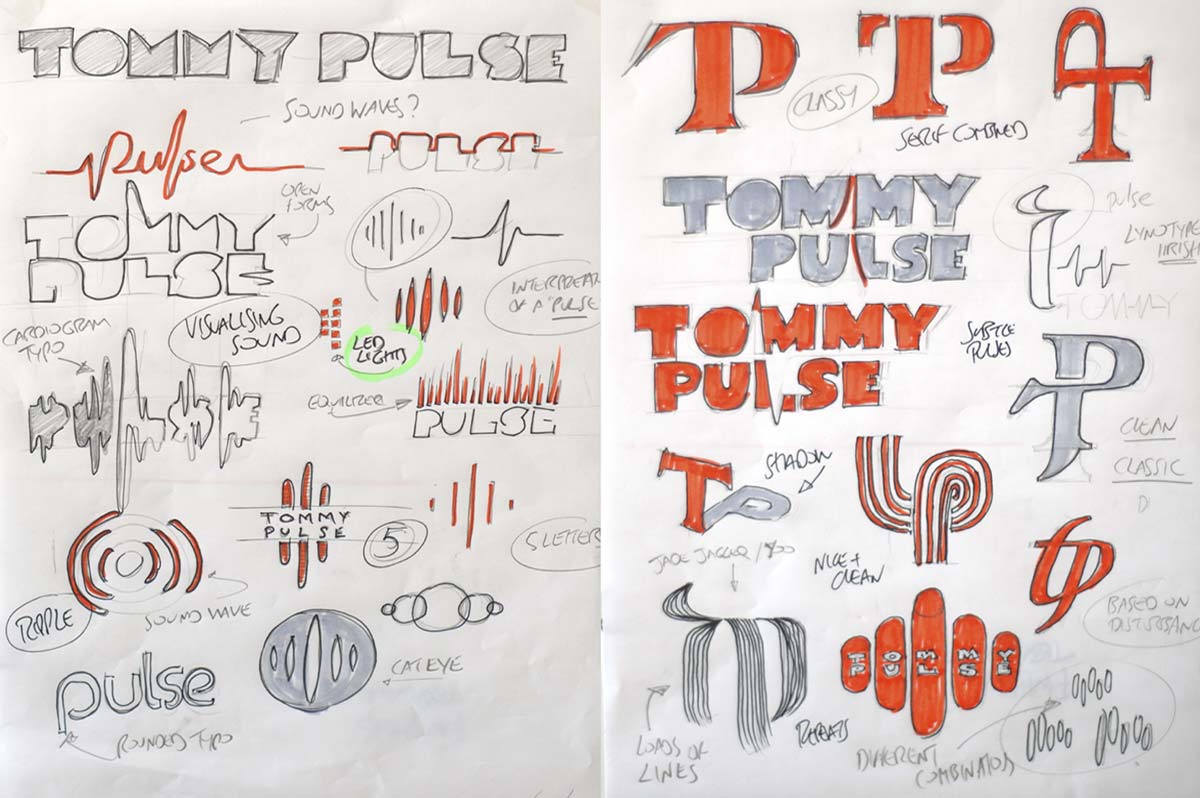 TOMMY PULSE
SOUND WAVES?
Pulse
PULSE
OPEN
FORMS
TOMMY
PULSE
INTERPRETAT
OF A "PULSE
CARDIOGRAM
TYPO
VISUALISING
SOUND
LED
LIGHTS
EQUALIZER
PULSE
PULSE
TOMMY
PULSE
5
5 LETTERS
RIPPLE
SOUND WAVE
CAT EYE
pulse
ROUNDED TYPO
TP
CLASSY
TP
SERIF COMBINED
TOMMY
PULSE
pulse
LYNOTYPE
IIRISH
TOMMY
TOMMY
PULSE
SUBTLE
RULES
TP
CLEAN
CLASSIC
TP
SHADOW
JADE JAGGER /
NICE +
CLEAN
BASED ON
DISTURBANC
LOADS OF
LINES
REPEATS
TOMMY
PULSE
DIFFERENT
COMBINATIOS